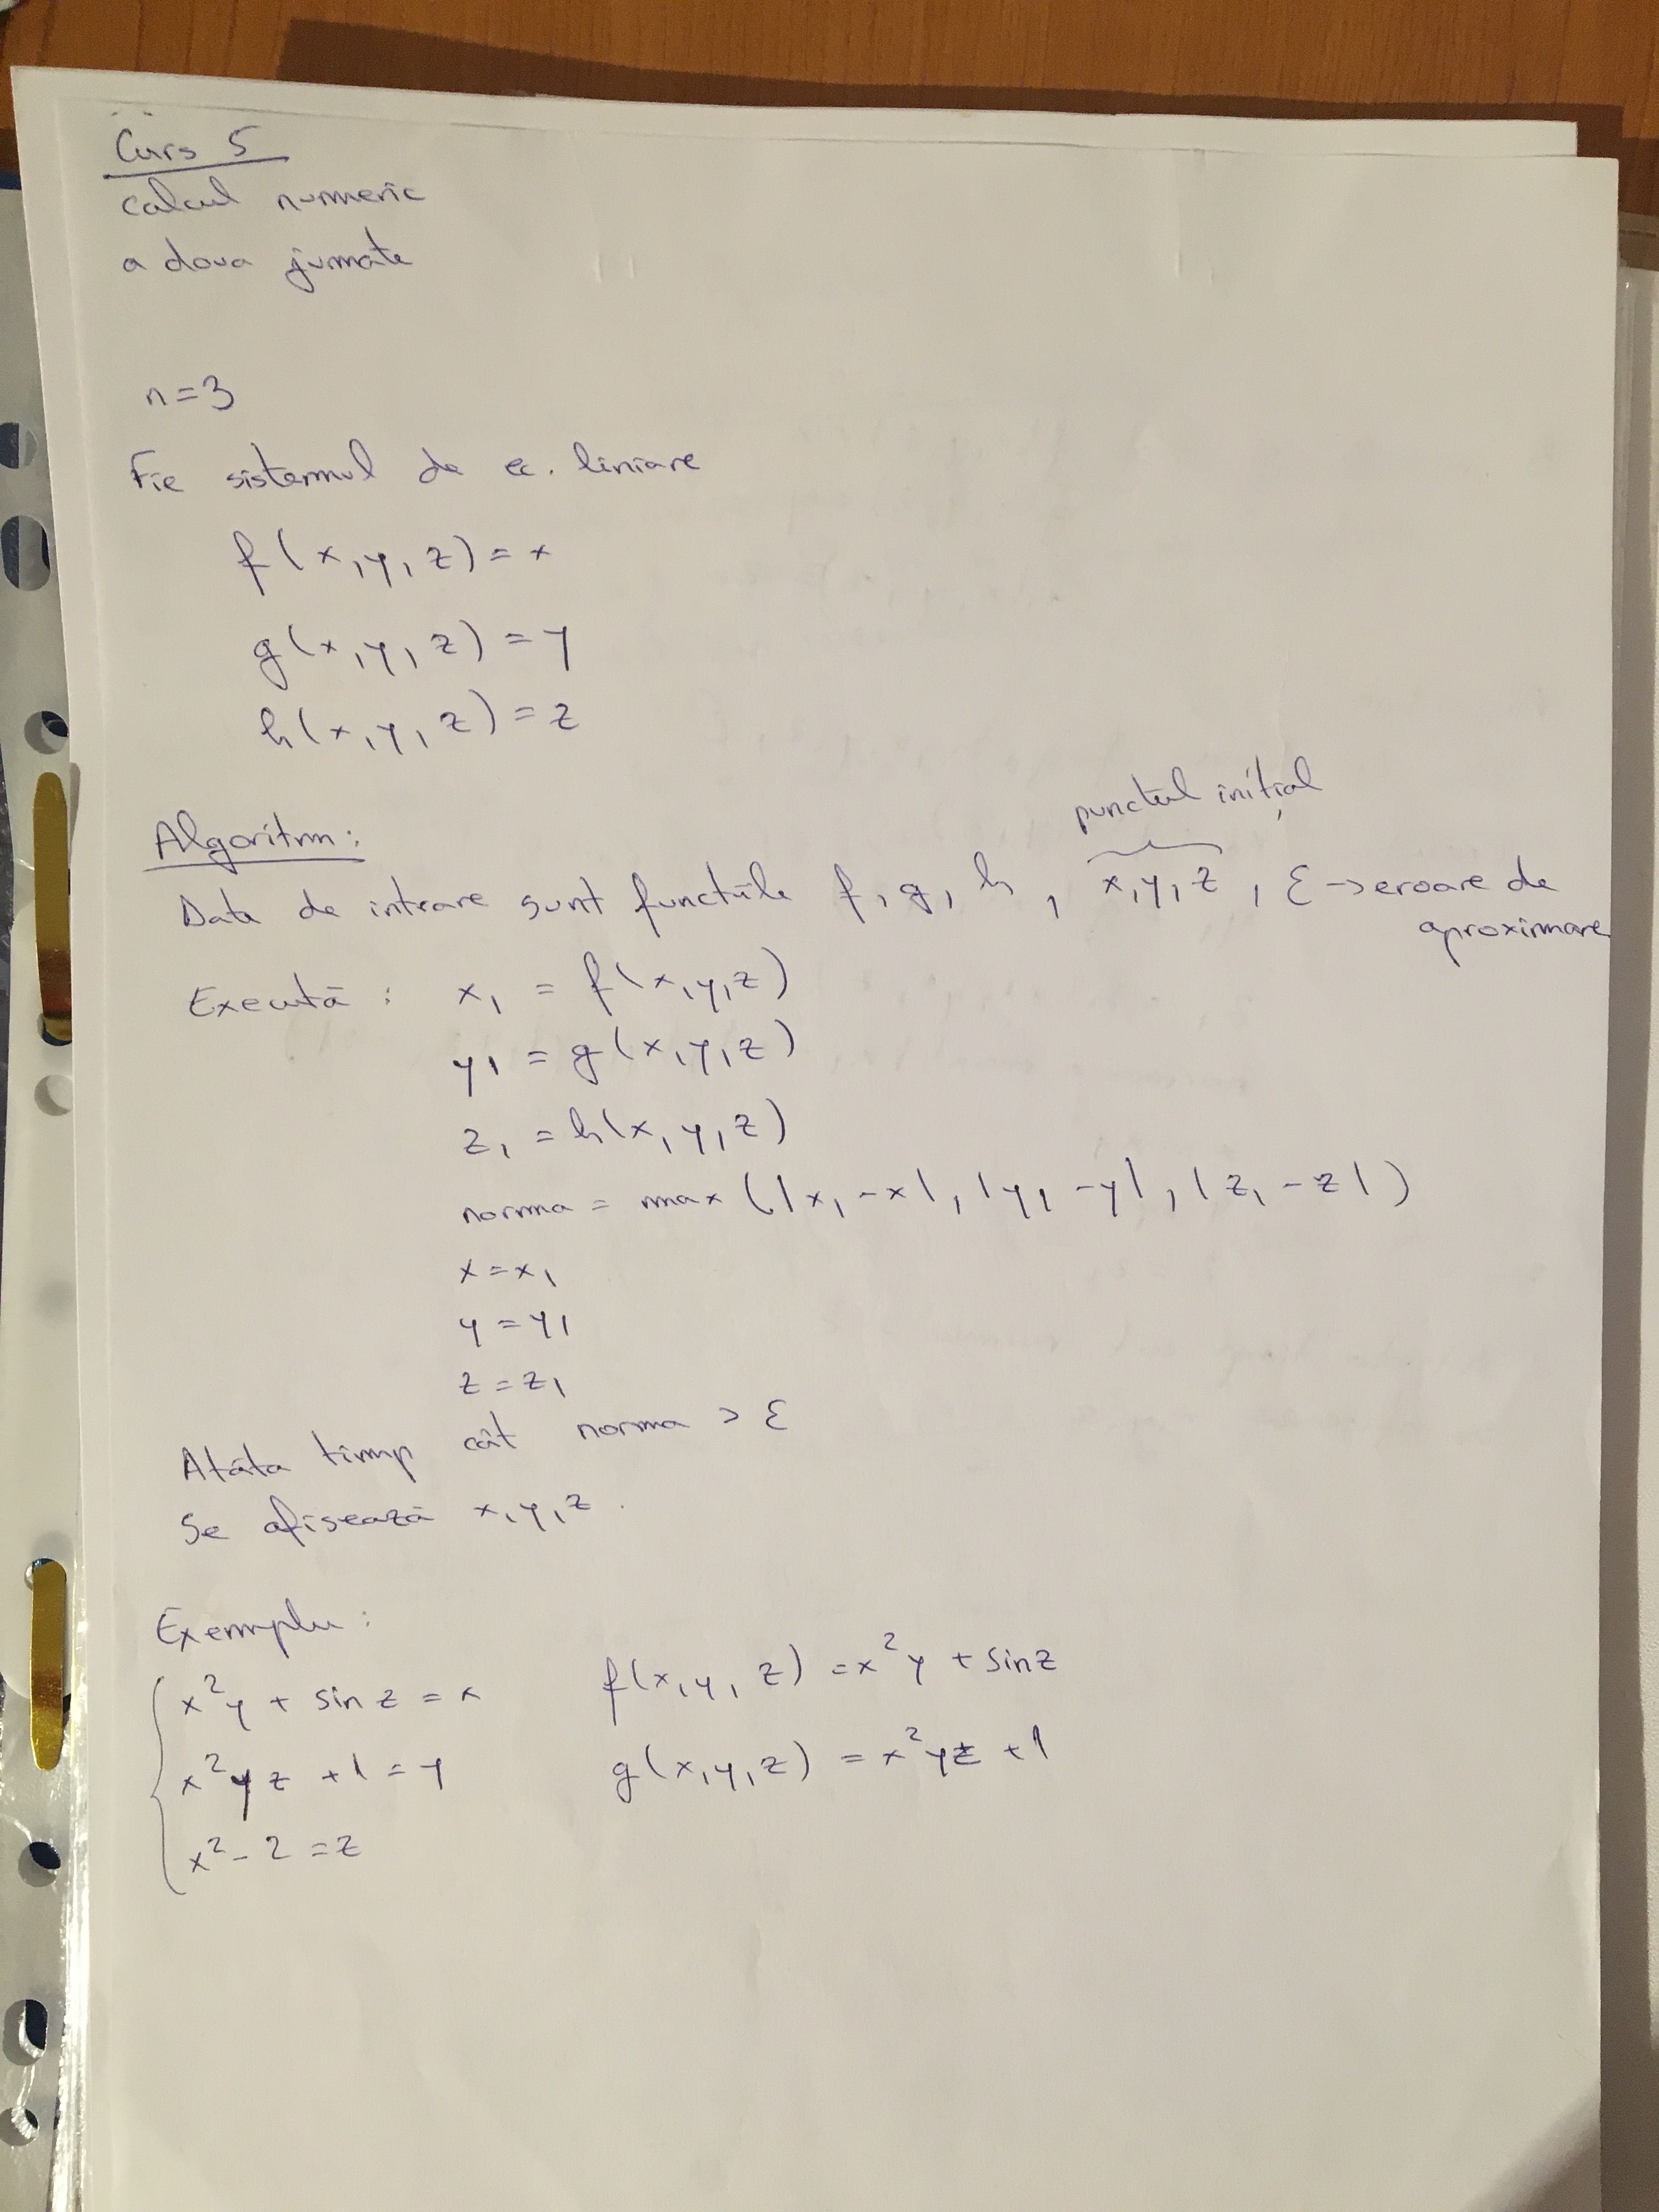 Curs 5
calcul numeric
a doua jumate
n=3
Fie sistemul de ec. liniare
f(x,y,z)=x
g(x,y,z)=y
h(x,y,z)=z
punctul inițial
Algoritm:
Date de intrare sunt functiile f,g,h, x,y,z, ε→eroare de
aproximare
Execută: x₁ = f(x,y,z)
y₁ = g(x,y,z)
z₁ = h(x,y,z)
norma = max(|x₁-x|,|y₁-y|,|z₁-z|)
x=x₁
y=y₁
z=z₁
Atâta timp cât norma > ε
Se afisează x,y,z.
Exemplu:
x²y + sin z = x f(x,y,z) = x²y + sin z
x²yz +1 = y g(x,y,z) = x²yz +1
x²-2=z